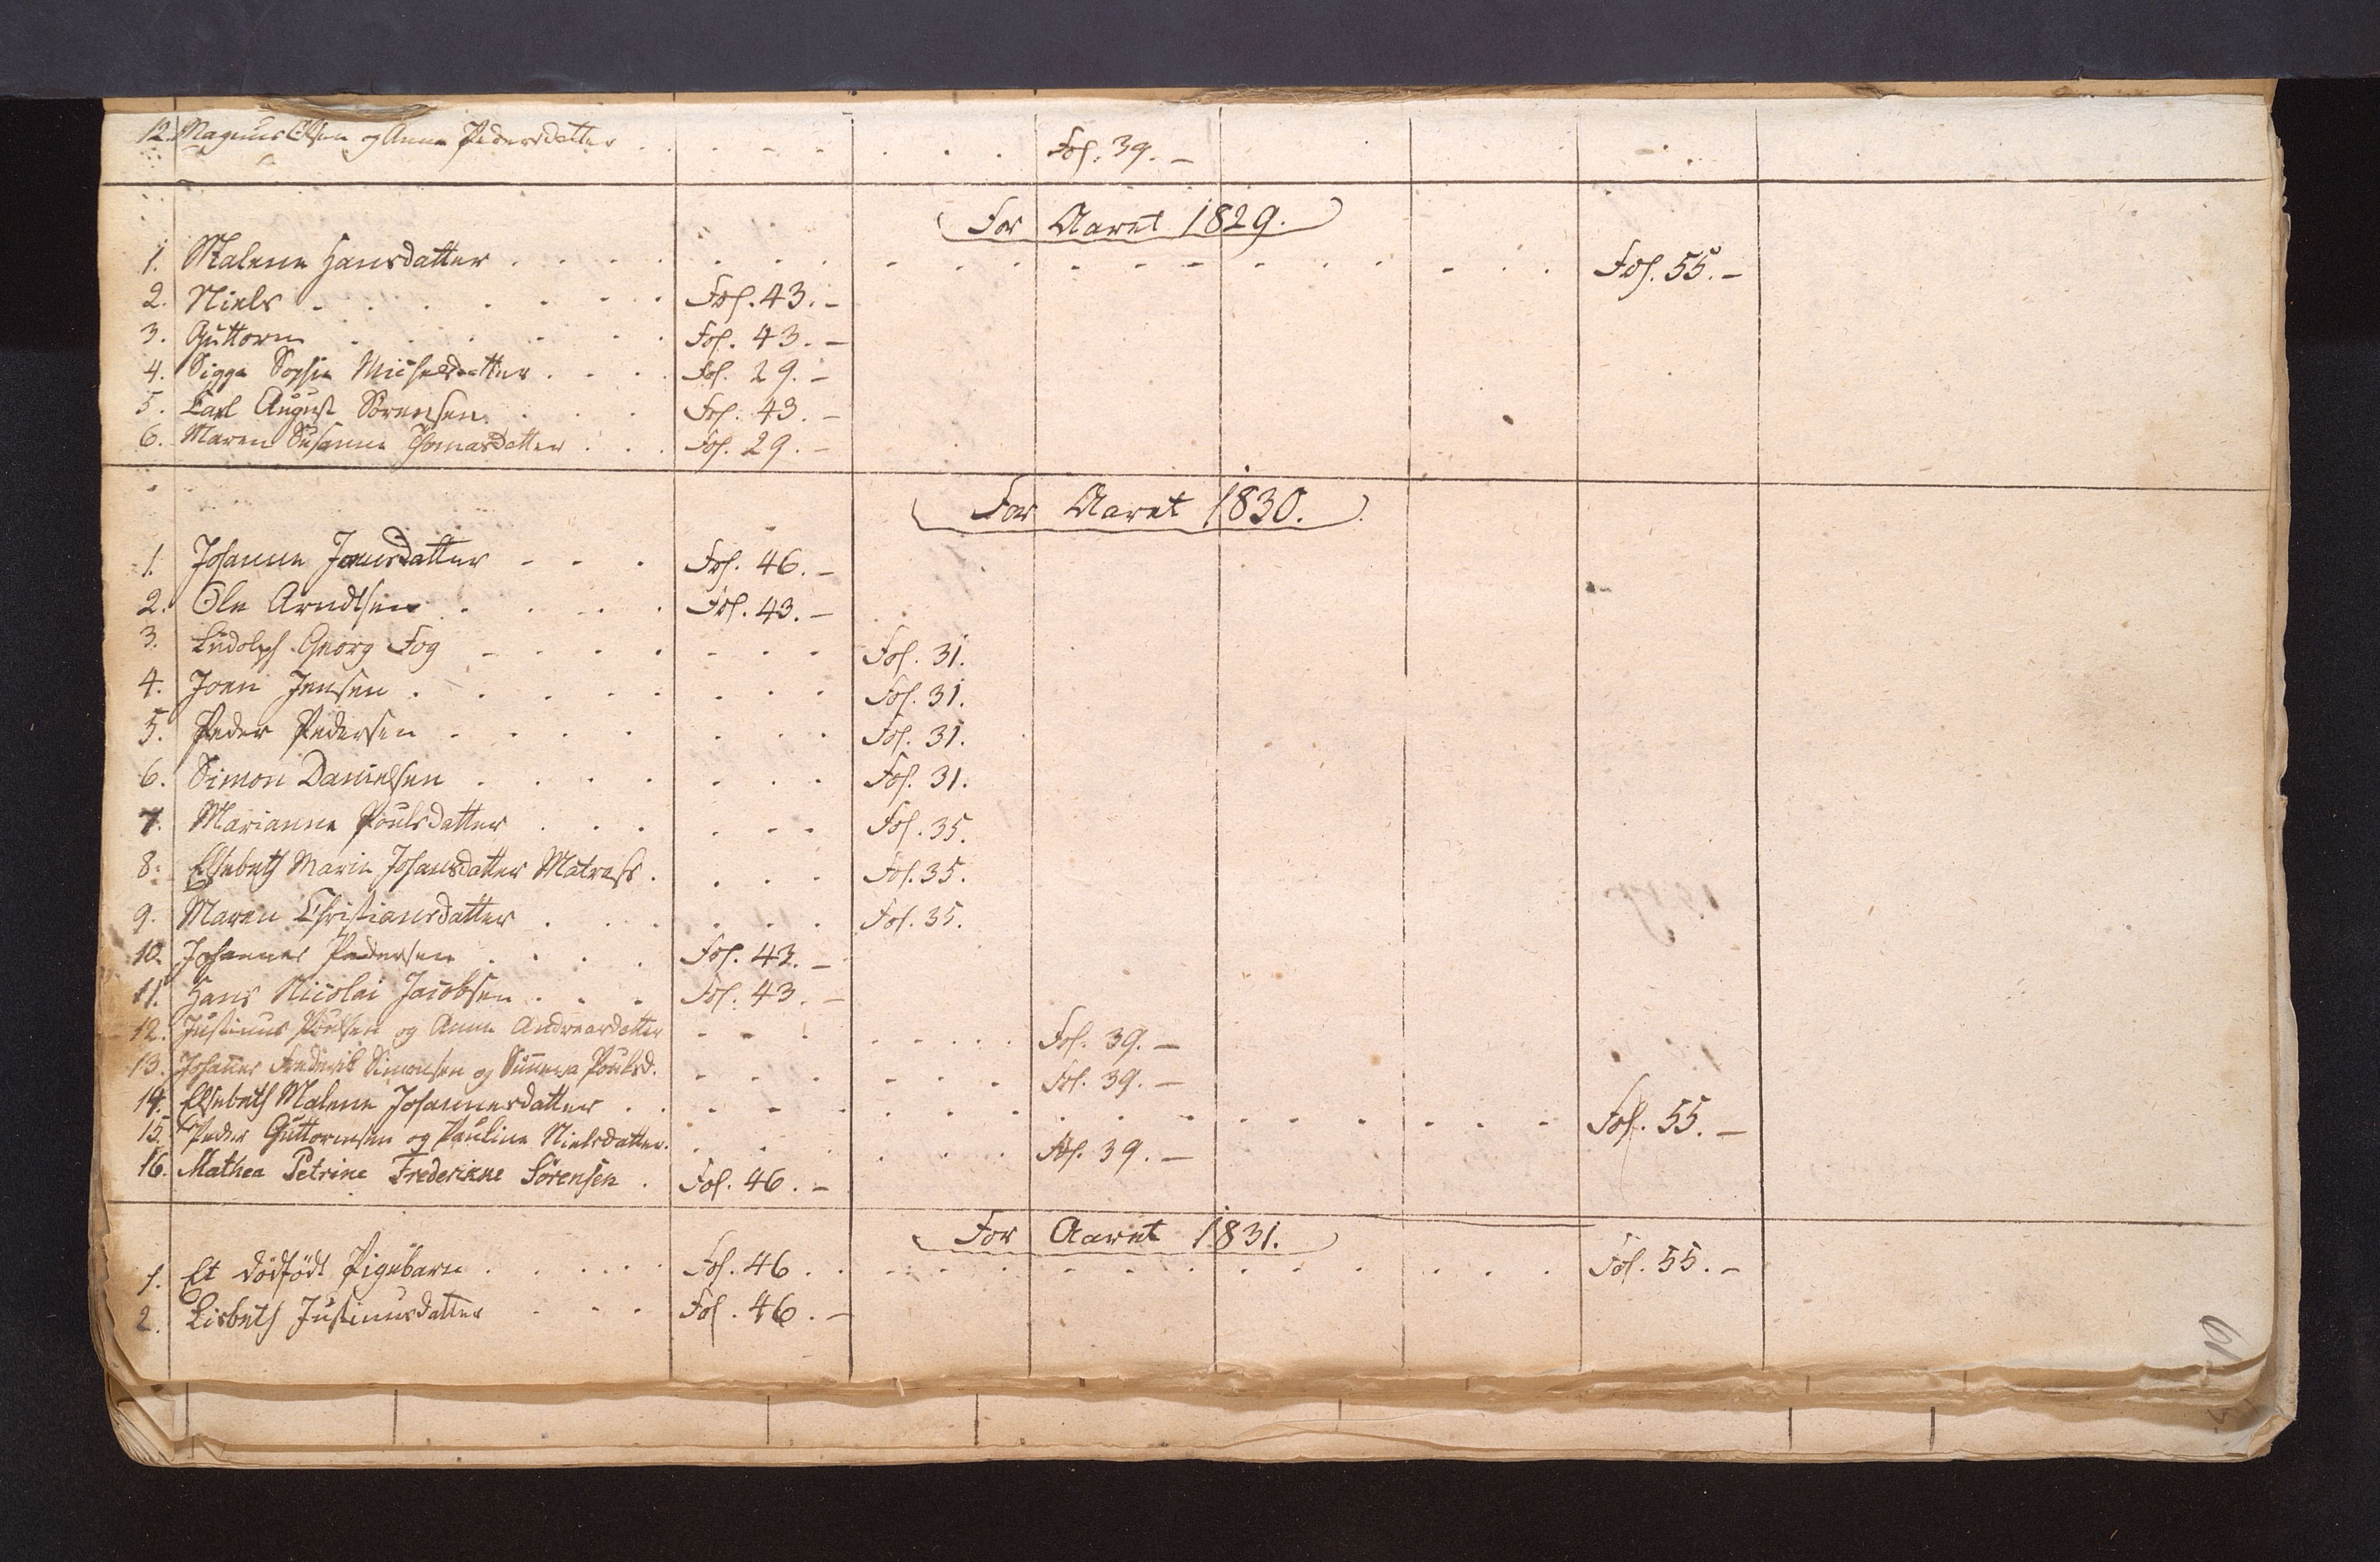 12. Magnus Olsen og Anna Pedersdatter . . . Fol. 39. –
For Aaret 1829.
1. Malene Hansdatter . . . Fol. 55. –
2. Niels . . . Fol. 43. –
3. Guttorm . . . Fol. 43. –
4. Sigga Sophie Michelsdatter . . . Fol. 29. –
5. Carl August Sörensen . . . Fol. 43. –
6. Maren Susanne Thomasdatter . . . Fol. 29. –
For Aaret 1830.
1. Johanne Joensdatter . . . Fol. 46. –
2. Ole Arndtsen . . . Fol. 43. –
3. Ludolph Georg Fog . . . Fol. 31.
4. Joen Jensen . . . Fol. 31.
5. Peder Pedersen . . . Fol. 31.
6. Simon Danielsen . . . Fol. 31.
7. Marianne Poulsdatter . . . Fol. 35.
8. Elsebeth Marie Johansdatter Matrass . . . Fol. 35.
9. Maren Christiansdatter . . . Fol. 35.
10. Johannes Pedersen . . . Fol. 43. –
11. Hans Nicolai Jacobsen . . . Fol. 43. –
12. Justinus Poulsen og Anne Andreasdatter . . . Fol. 39. –
13. Johannes Frederik Simonsen og Sunneva Poulsd. . . . Fol. 39. –
14. Elsebeth Malene Johannesdatter . . . Fol. 55. –
15. Peder Guttormsen og Pauline Nielsdatter . . . Fol. 39. –
16. Mathea Petrine Frederikke Sörensen . Fol. 46. –
For Aaret 1831.
1. Et dödfödt Pigebarn . . . Fol. 46 . . . Fol. 55. –
2. Lisbeth Justinusdatter . . . Fol. 46. –